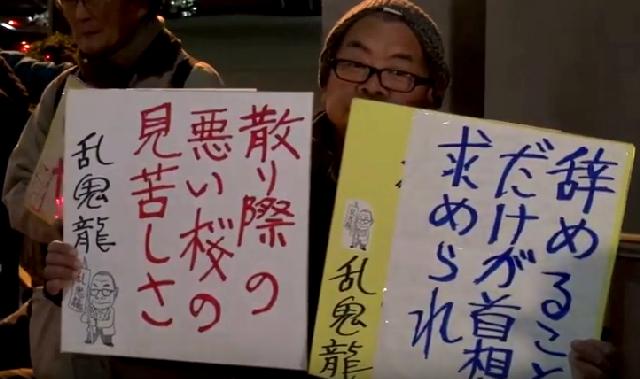 散り際の
悪い桜の
見苦しさ
乱鬼龍
辞めること
だけが首相
求められ
乱鬼龍